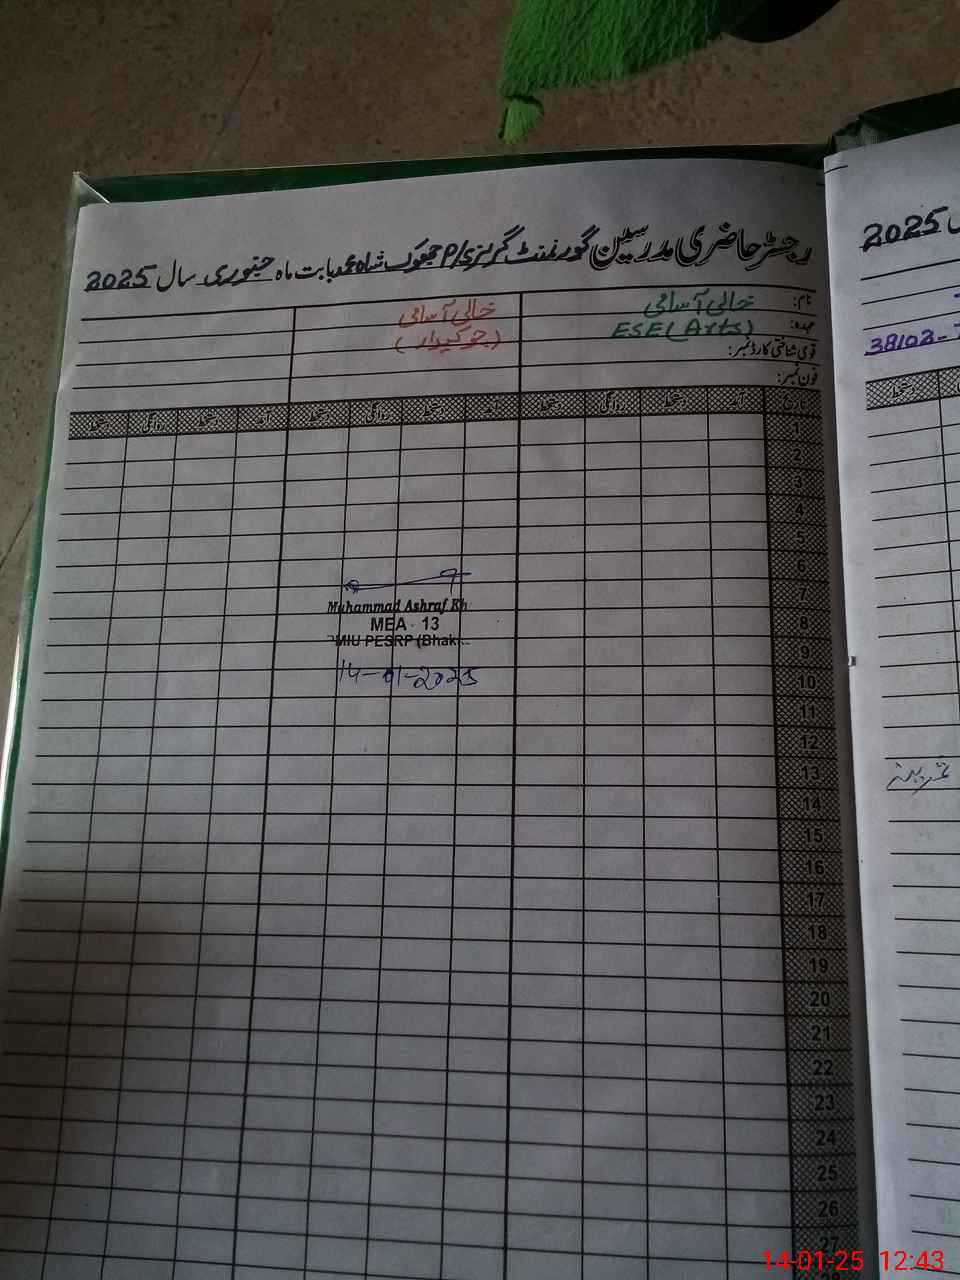 رجسٹر حاضری مدرسین گورنمنٹ گرلز P/S جھوک شاہ محمد بابت ماہ جنوری سال 2025
نام: خالی آسامی
عہدہ: ESE (Arts)
قومی شناختی کارڈ نمبر:
فون نمبر:
خالی آسامی
(چوکیدار)
تاریخ آمد دستخط روانگی دستخط آمد دستخط روانگی دستخط آمد دستخط روانگی دستخط
1
2
3
4
5
6
7
8
9
10
11
12
13
14
15
16
17
18
19
20
21
22
23
24
25
26
27
Muhammad Ashraf Kh
MEA 13
PMIU PESRP (Bhak
14-01-2025
2025
38102-
دستخط
14-01-25 12:43